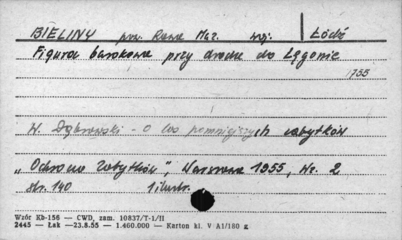 BIELINY pow. Rawa Maz. woj. Łódź
Figura barokowa przy drodze do Lęgonic
1755
W. Dąbrowski - O los pomniejszych zabytków
"Ochrona Zabytków", Warszawa 1955, Nr. 2
str. 140 1 ilustr.
Wzór Kb-156 — CWD, zam. 10837/T-1/II
2445 — Łak —23.8.55 — 1.460.000 — Karton kl. V A1/180 g